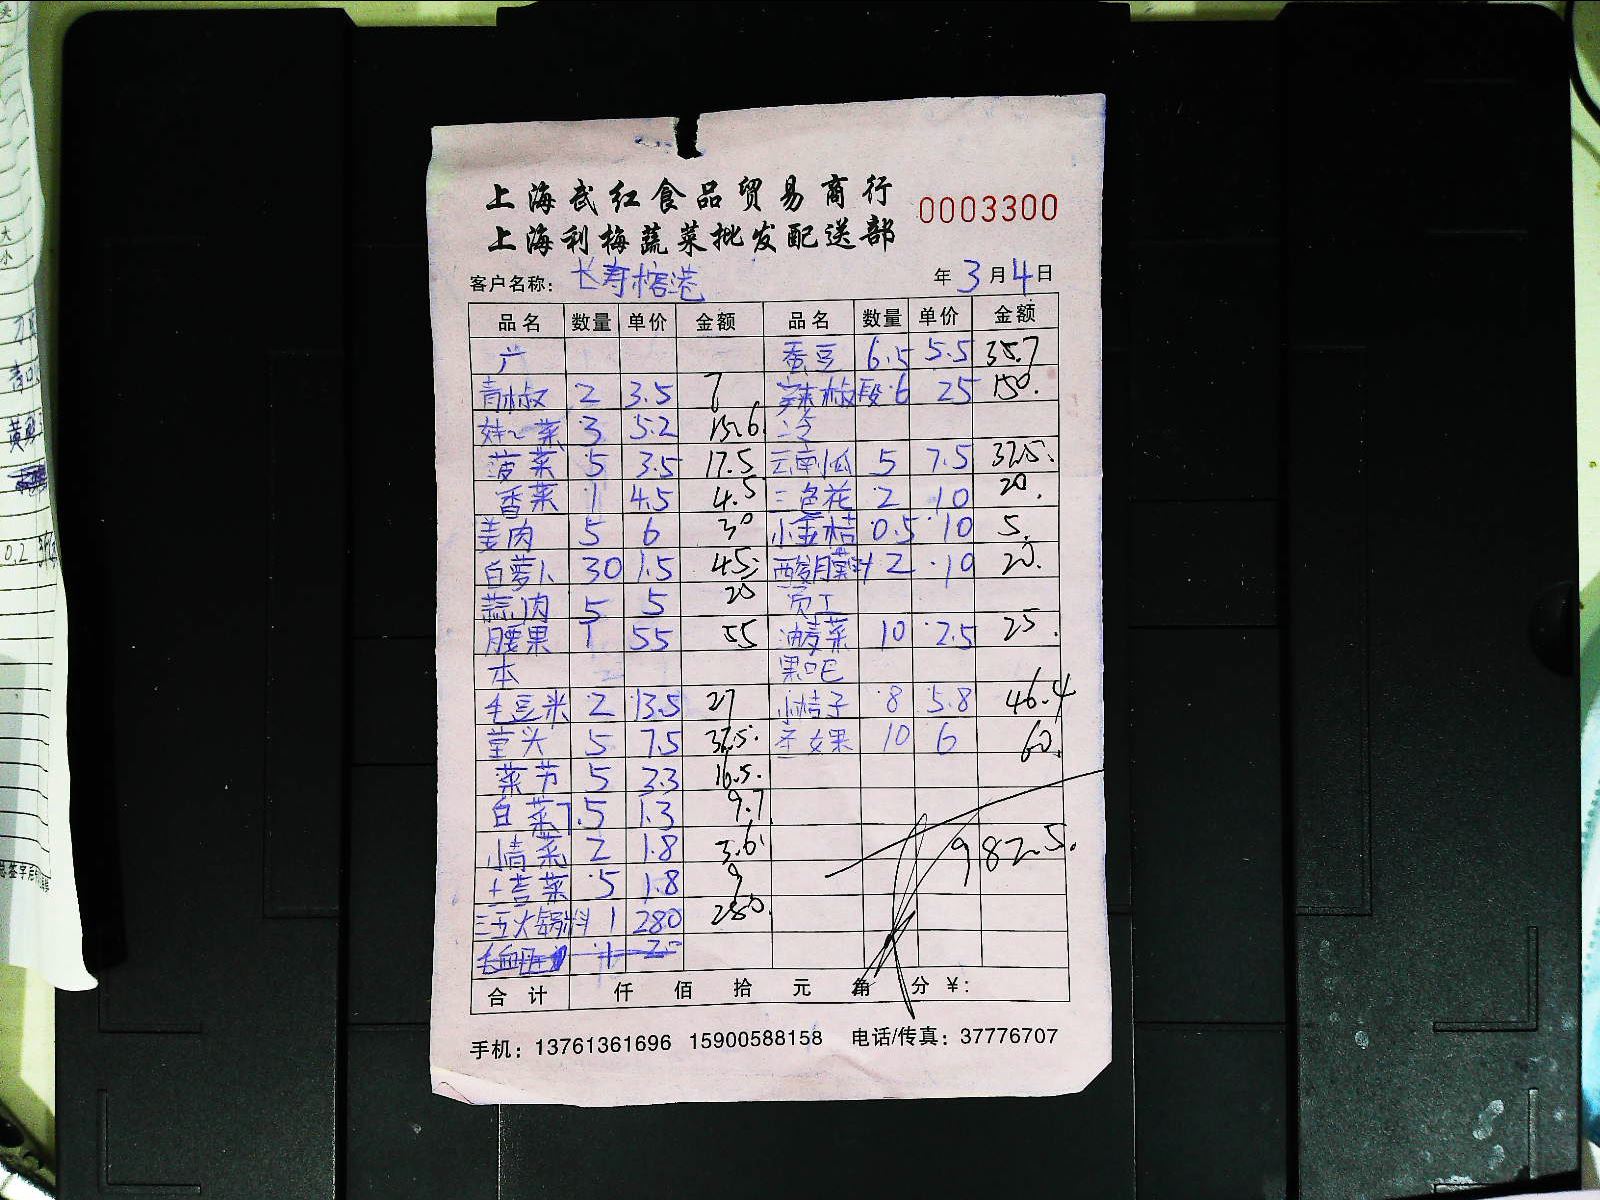 上海武红食品贸易商行
0003300
上海利梅蔬菜批发配送部
客户名称: 长寿榕港 年 3 月 4 日
品名 数量 单价 金额 品名 数量 单价 金额
蚕豆 6.5 5.5 35.7
青椒 2 3.5 7 辣椒段 6 25 150.
娃~菜 3 5.2 15.6 冷
菠菜 5 3.5 17.5 云南瓜 5 7.5 37.5.
香菜 1 4.5 4.5 三色花 2 10 20.
姜肉 5 6 30 小金桔 0.5 10 5.
白萝卜 30 1.5 45. 酸膜料 2 10 20.
蒜肉 5 5 25 员工
腰果 1 55 55 油麦菜 10 2.5 25.
本 果吧
毛豆米 2 13.5 27 小桔子 8 5.8 46.4
茔头 5 7.5 37.5. 圣女果 10 6 60.
菜芀 5 3.3 16.5.
白菜 7.5 1.3 9.7
小青菜 2 1.8 3.6 982.5.
土吉菜 5 1.8 9
三五火锅料 1 280 280.
合计 仟 佰 拾 元 角 分 ¥:
手机: 13761361696 15900588158 电话/传真: 37776707